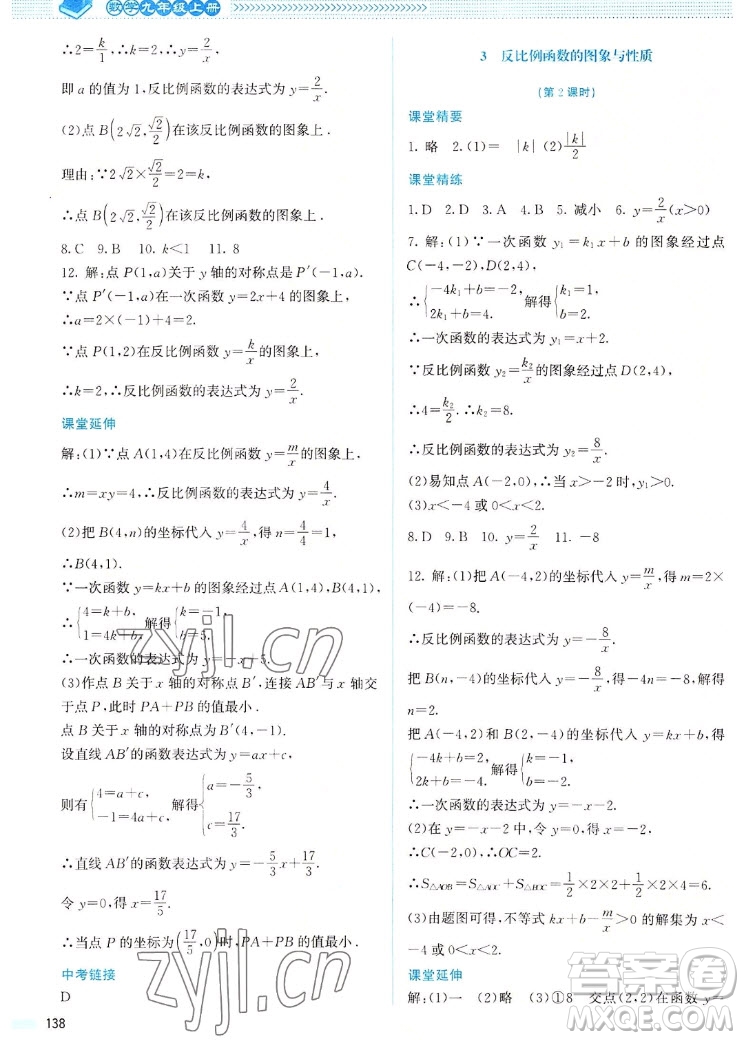 数学九年级上册
∴2=k/1，∴k=2.
即a的值为1，反比例函数的表达式为y=2/x.
(2)点B(2√2，√2/2)在该反比例函数的图象上.
理由：∵2√2×√2/2=2=k，
∴点B(2√2，√2/2)在该反比例函数的图象上.
8.C 9.B 10.k<1 11.8
12.解：点P(1,a)关于y轴的对称点是P′(-1,a).
∵点P′(-1,a)在一次函数y=2x+4的图象上，
∴a=2×(-1)+4=2.
∵点P(1,2)在反比例函数y=k/x的图象上，
∴k=2，∴反比例函数的表达式为y=2/x.
课堂延伸
解：(1)∵点A(1,4)在反比例函数y=m/x的图象上，
∴m=xy=4，∴反比例函数的表达式为y=4/x.
(2)把B(4,n)的坐标代入y=4/x，得n=4/4=1，
∴B(4,1).
∵一次函数y=kx+b的图象经过点A(1,4)，B(4,1)，
∴{4=k+b，1=4k+b，解得{k=-1，b=5.
∴一次函数的表达式为y=-x+5.
(3)作点B关于x轴的对称点B′，连接AB′与x轴交
于点P，此时PA+PB的值最小.
点B关于x轴的对称点为B′(4,-1).
设直线AB′的函数表达式为y=ax+c，
则有{4=a+c，-1=4a+c，解得{a=-5/3，c=17/3.
∴直线AB′的函数表达式为y=-5/3x+17/3.
令y=0，得x=17/5.
∴当点P的坐标为(17/5,0)时，PA+PB的值最小.
中考链接
D
138
3 反比例函数的图象与性质
(第2课时)
课堂精要
1.略 2.(1)= |k| (2)|k|/2
课堂精练
1.D 2.D 3.A 4.B 5.减小 6.y=2/x(x>0)
7.解：(1)∵一次函数y₁=k₁x+b的图象经过点
C(-4,-2)，D(2,4)，
∴{-4k₁+b=-2，2k₁+b=4，解得{k₁=1，b=2.
∴一次函数的表达式为y₁=x+2.
∵反比例函数y₂=k₂/x的图象经过点D(2,4)，
∴4=k₂/2.∴k₂=8.
∴反比例函数的表达式为y₂=8/x.
(2)易知点A(-2,0)，∴当x>-2时，y₁>0.
(3)x<-4或0<x<2.
8.D 9.B 10.y=2/x 11.-8
12.解：(1)把A(-4,2)的坐标代入y=m/x，得m=2×
(-4)=-8.
∴反比例函数的表达式为y=-8/x.
把B(n,-4)的坐标代入y=-8/x，得-4n=-8，解得
n=2.
把A(-4,2)和B(2,-4)的坐标代入y=kx+b，得
{-4k+b=2，2k+b=-4，解得{k=-1，b=-2.
∴一次函数的表达式为y=-x-2.
(2)在y=-x-2中，令y=0，则x=-2，
∴C(-2,0)，∴OC=2.
∴S△AOB=S△AOC+S△BOC=1/2×2×2+1/2×2×4=6.
(3)由题图可得，不等式kx+b-m/x>0的解集为x<
-4或0<x<2.
课堂延伸
解：(1)一 (2)略 (3)①8 交点(2,2)在函数y=
zyjl.cn
zyjl.cn
答案圈
MXQE.COM